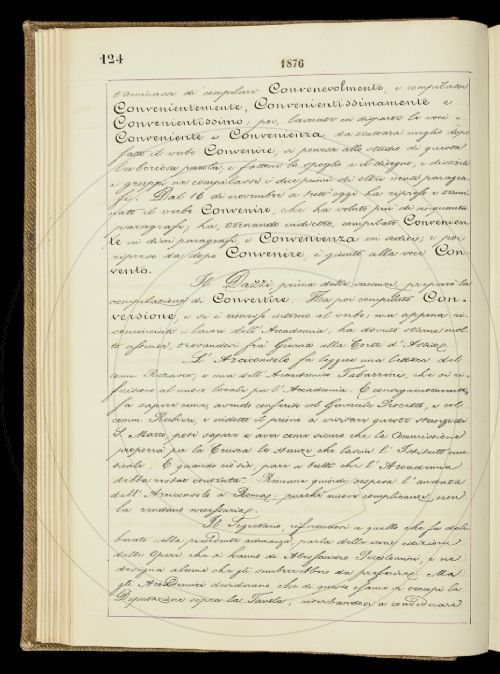 124
1876
terminava di compilare Convenevolmente, e compilava
Convenientemente, Convenientissimamente e
Convenientissimo; poi, lasciato in disparte le voci
Conveniente e Convenienza, da trattarsi meglio dopo
fatto il verbo Convenire, si pensò allo studio di questa
laboriosa parola, e fattone lo spoglio e il disegno, e distinti
i gruppi ne compilava i due primi di oltre venti paragra-
fi. Dal 16 di novembre a tutt'oggi ha ripreso e termi-
nato il verbo Convenire, che ha voluto più di cinquanta
paragrafi; ha, tornando indietro, compilato Convenien-
te in dieci paragrafi, e Convenienza in sedici; e poi
ripreso da dopo Convenire, è giunto alla voce Con-
vento.
Il Dazzi, prima delle vacanze, preparò la
compilazione di Convertire. Ha poi compilato Con-
versione, e si è rimesso intorno al verbo: ma appena ri-
cominciati i lavori dell'Accademia, ha dovuto starne mol-
to assente, trovandosi fra' Giurati alla Corte d'Assise.
L'Arciconsolo fa leggere una lettera del
comm. Rezasco, e una dell'Accademico Tabarrini, che si ri-
feriscono al nuovo locale per l'Accademia. E conseguentemente
fa sapere come, avendo conferito col Generale Pescetto, e col
comm. Rubieri, e indotto il primo a visitare queste stanze di
S. Marco, poté sapere e aver come sicuro che la Commissione
proporrà per la Crusca le stanze che lascia l'Istituto mu-
sicale. E quando ciò sia, pare a tutti che l'Accademia
debba restar contenta. Rimane quindi sospesa l'andata
dell'Arciconsolo a Roma, purché nuove complicanze non
la rendano necessaria.
Il Segretario, riferendosi a quello che fu deli-
berato nella precedente adunanza, parla delle varie edizioni
delle Opere che si hanno di Alessandro Piccolomini, e ne
disegna alcune che gli sembrerebbero da preferirsi. Ma
gli Accademici desiderano che di questo esame si occupi la
Deputazione sopra la Tavola, riserbandosi a considerare